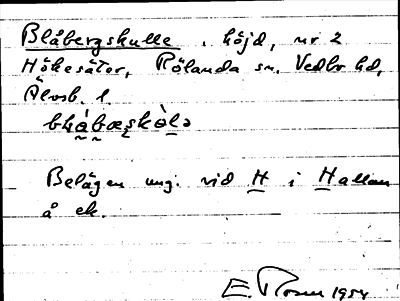 Blåbergskulle, höjd, nr 2
Hökesäter, Rölanda sn. Vedbo hd,
Älvsb. l.
Belägen ung. vid H i Hallan
å ek.
E. Rosen 1954